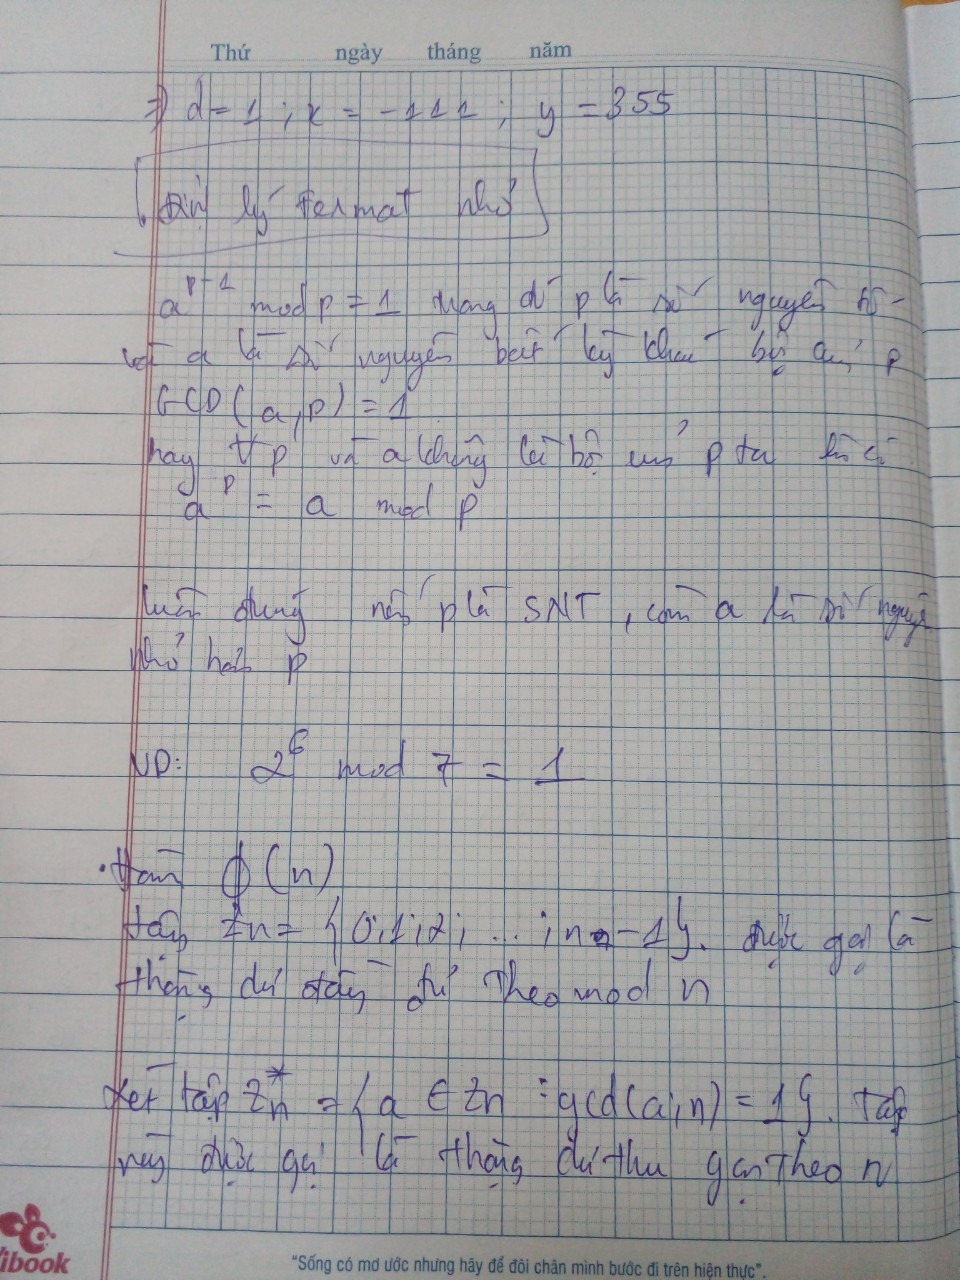 Thứ ngày tháng năm
⇒ d = 1 ; x = -111 ; y = 355
Định lý fermat nhỏ
a^{p-1} mod p = 1 trong đó p là số nguyên tố -
với a là số nguyên bất kỳ khác bội của p
GCD(a,p) = 1
hay ∀p và a không là bội của p ta luôn có
a^p = a mod p
luôn đúng nếu p là SNT, còn a là số nguyên
nhỏ hơn p
VD: 2^6 mod 7 = 1
. Hàm ϕ(n)
tập Zn = {0;1;2; ... ; n-1}. được gọi là
thặng dư đầy đủ theo mod n
xét tập Z*n = {a ∈ Zn : gcd(a;n) = 1}. Tập
này được gọi là thặng dư thu gọn theo n
Vibook
"Sống có mơ ước nhưng hãy để đôi chân mình bước đi trên hiện thực".